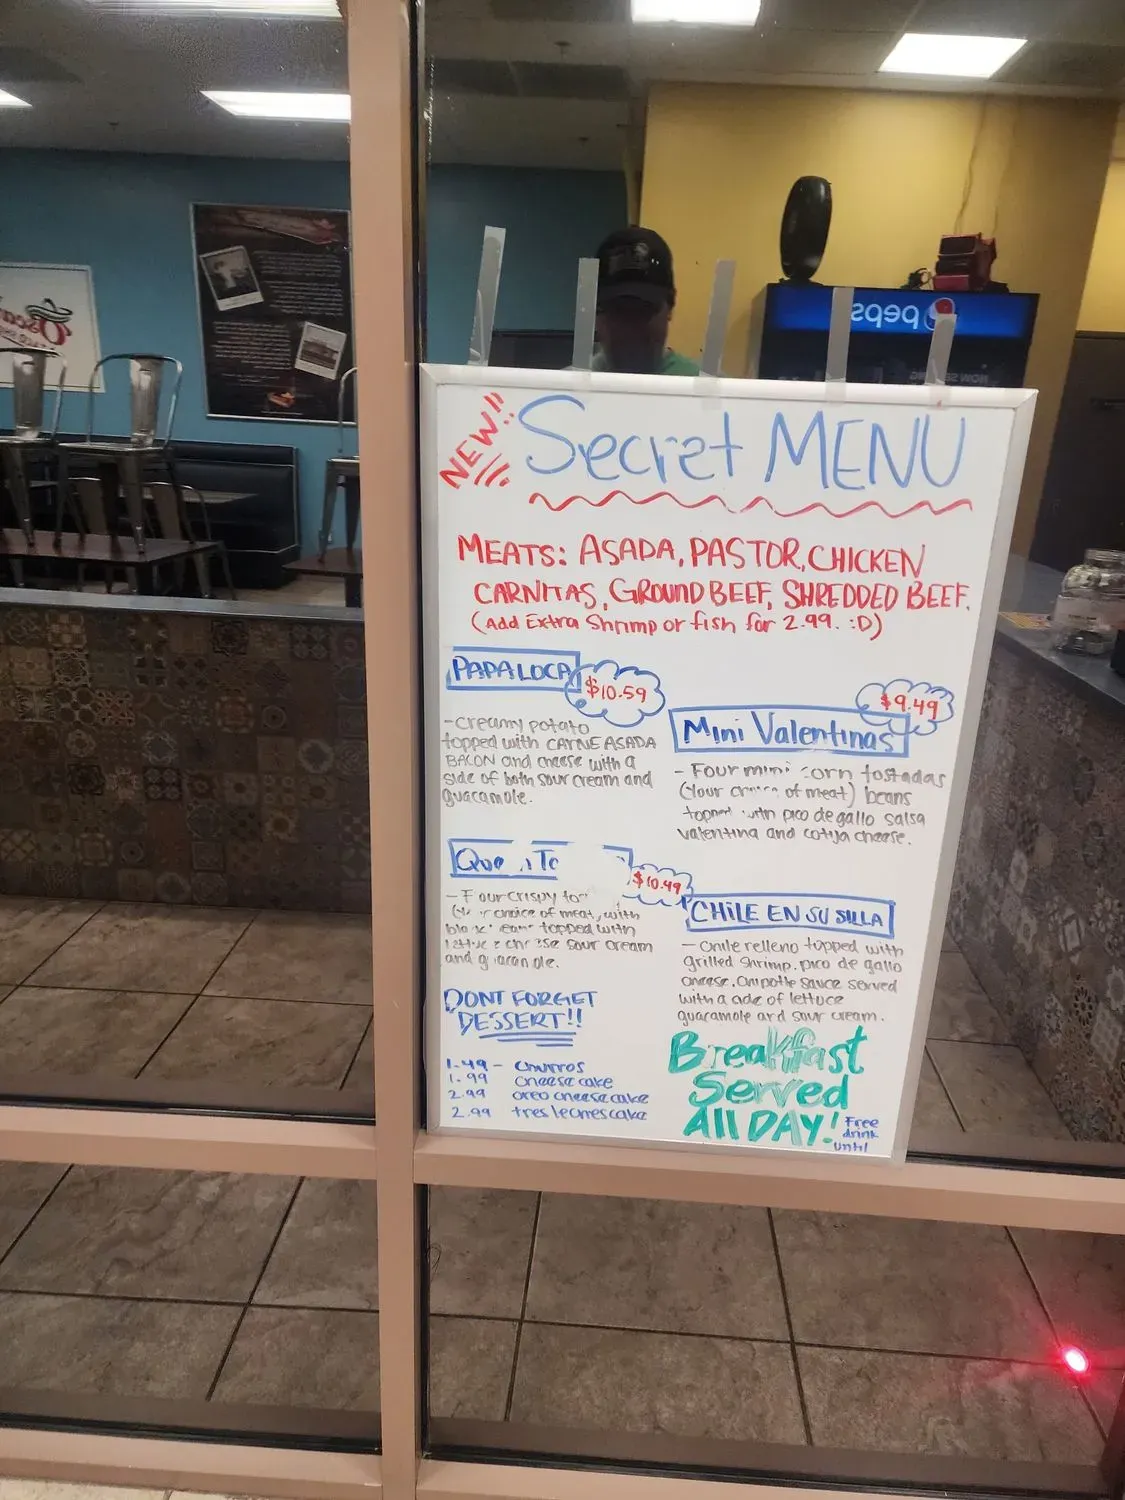 NEW!!
Secret MENU
MEATS: ASADA, PASTOR, CHICKEN
CARNITAS, GROUND BEEF, SHREDDED BEEF.
(Add Extra Shrimp or fish for 2.99. :D)
PAPA LOCA
$10.59
-creamy potato
topped with CARNE ASADA
BACON and cheese with a
side of both sour cream and
guacamole.
$9.49
Mini Valentinas
- Four mini corn tostadas
(Your of meat) beans
with pico de gallo salsa
valentina and cotija cheese.
$10.49
- Four crispy
choice of meat, with
topped with
sour cream
and
CHILE EN SU SILLA
- Chile relleno topped with
grilled shrimp. pico de gallo
cheese. Chipotle sauce served
with a side of lettuce
guacamole and sour cream.
DONT FORGET
DESSERT!!
1.49 - churros
1.99 cheese cake
2.99 oreo cheese cake
2.99 tres leches cake
Breakfast
Served
All DAY!
Free
drink
until
pepsi